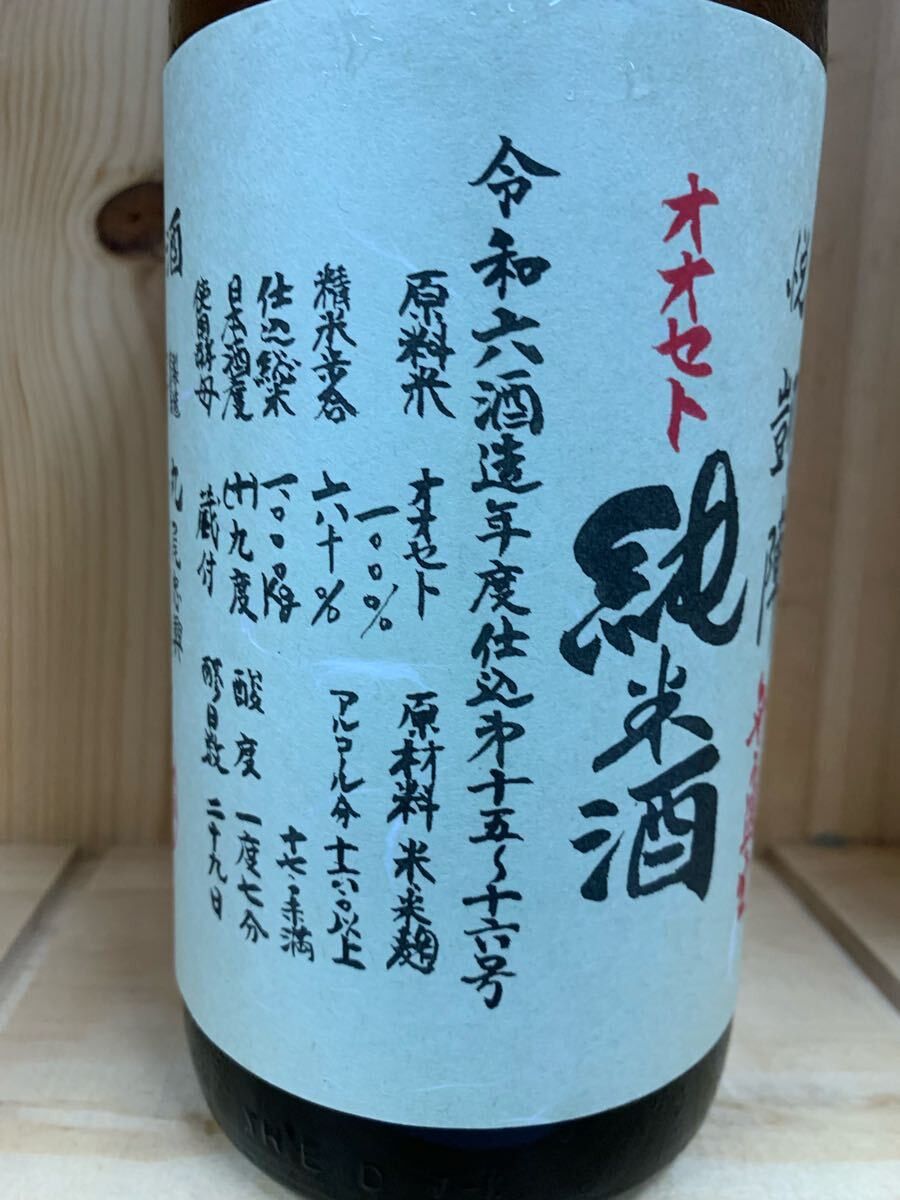 悦凱陣
オオセト
純米酒
令和六酒造年度仕込第十五〜十六号
原料米 オオセト
一〇〇%
原材料 米 米麹
精米歩合 六十%
アルコール分十六・〇以上
十七・〇未満
仕込総米 一、〇〇〇Kg
日本酒度 (+)九度
酸度 一度七分
使用酵母 蔵付
醪日数 二十九日
酒
丸尾忠興